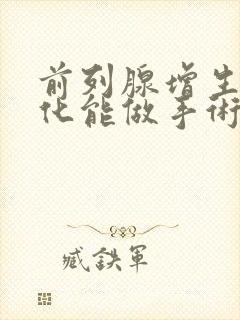 前列腺增生
化能做手術
臧鉄軍